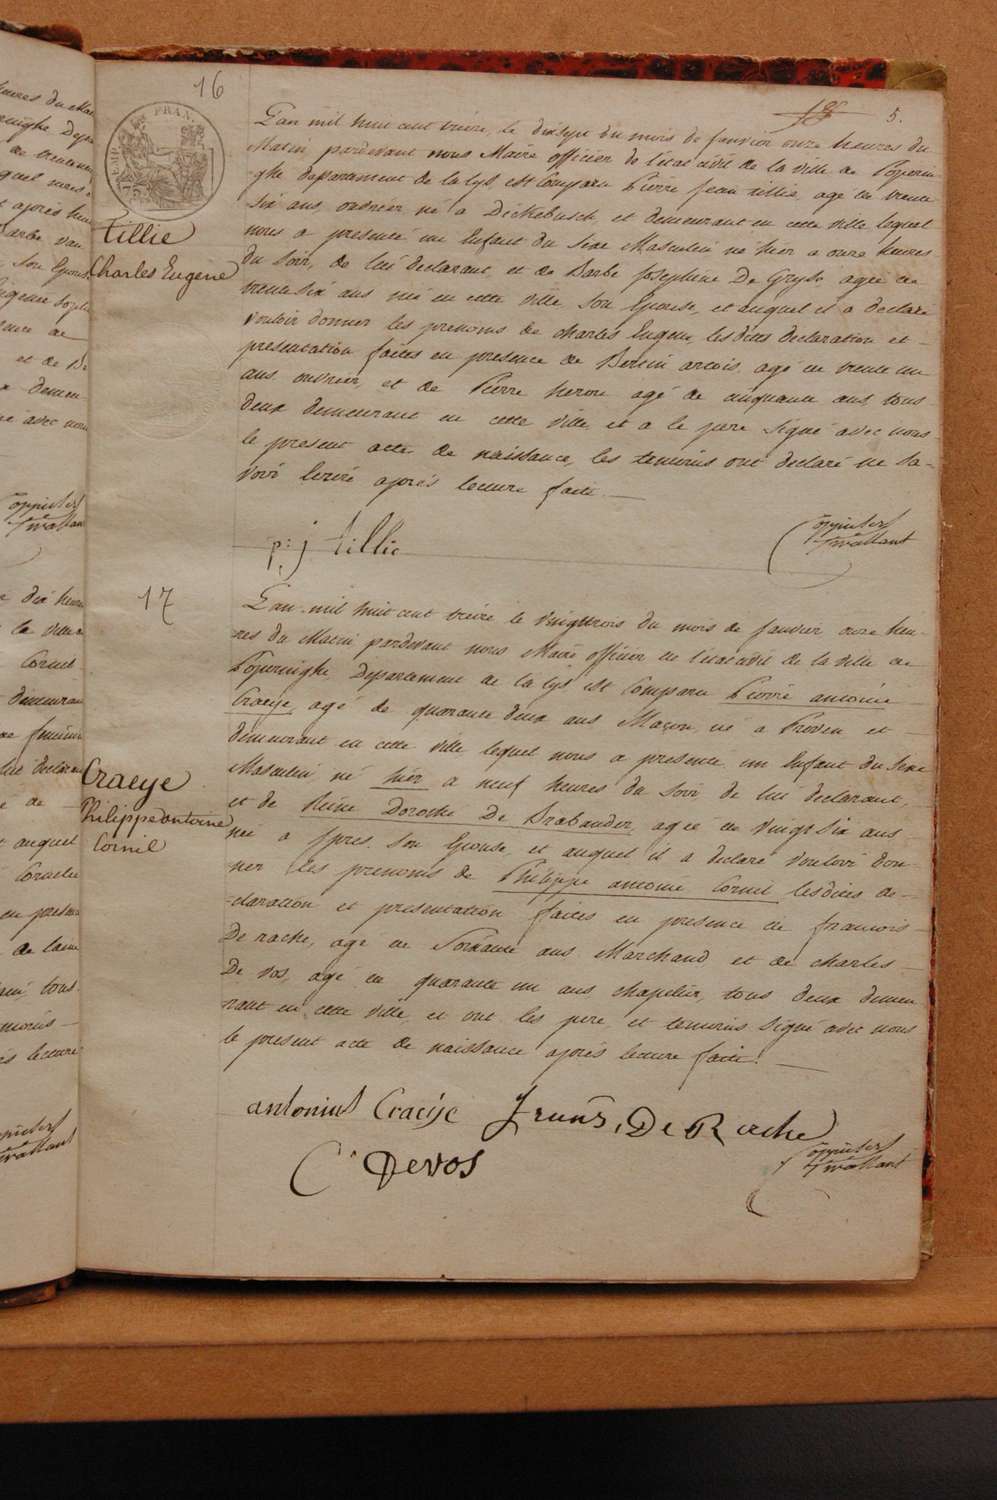 16
5.
EMPIRE FRAN.
Tillie
Charles Eugene
L'an mil huit cent treize, le dixsept du mois de Janvier onze heures du
Matin pardevant nous Maire officier de l'état civil de la ville de Poperin-
ghe departement de la Lys est Comparu Pierre Jean tillie, agé de trente
six ans, ouvrier né à Dickebusch et demeurant en cette ville lequel
nous a presenté un Enfant du Sexe Masculin né hier a onze heures
du Soir, de lui declarant et de Barbe Josephine De Gryse agée de
trente six ans née en cette ville Son Epouse, et auquel il a declaré
vouloir donner les prenoms de Charles Eugene, lesdites declaration et
presentation faites en presence de Bertin arcois, agé de trente un
ans, ouvrier, et de Pierre heron agé de cinquante ans tous
deux demeurant en cette ville et a le pere Signé avec nous
le present acte de naissance, les temoins ont declaré ne Sa-
voir Ecrire après lecture faite.
p: j tillie
17
Craeye
Philippe antoine
Cornil
L'an mil huit cent treize le vingttrois du mois de Janvier onze heu-
res du Matin pardevant nous Maire officier de l'état civil de la ville de
Poperinghe, Departement de la Lys est Comparu Pierre antoine
Craeye, agé de quarante deux ans Maçon, né a Proven et
demeurant en cette ville lequel nous a presenté un Enfant du Sexe
Masculin né hier a neuf heures du Soir de lui declarant,
et de Reine Dorothe De Brabander, agée de vingt Six ans
née a Ypres Son Epouse, et auquel il a declaré vouloir don-
ner les prenoms de Philippe antoine Cornil lesdites de-
-claration et presentation faites en presence de francois
De rache, agé de Soixante ans Marchand et de charles
De vos, agé de quarante un ans chapelier, tous deux demeu
rant en cette ville et ont les pere et temoins Signé avec nous
le present acte de naissance après lecture faite.
antonius Craeije
De Rache
C Devos